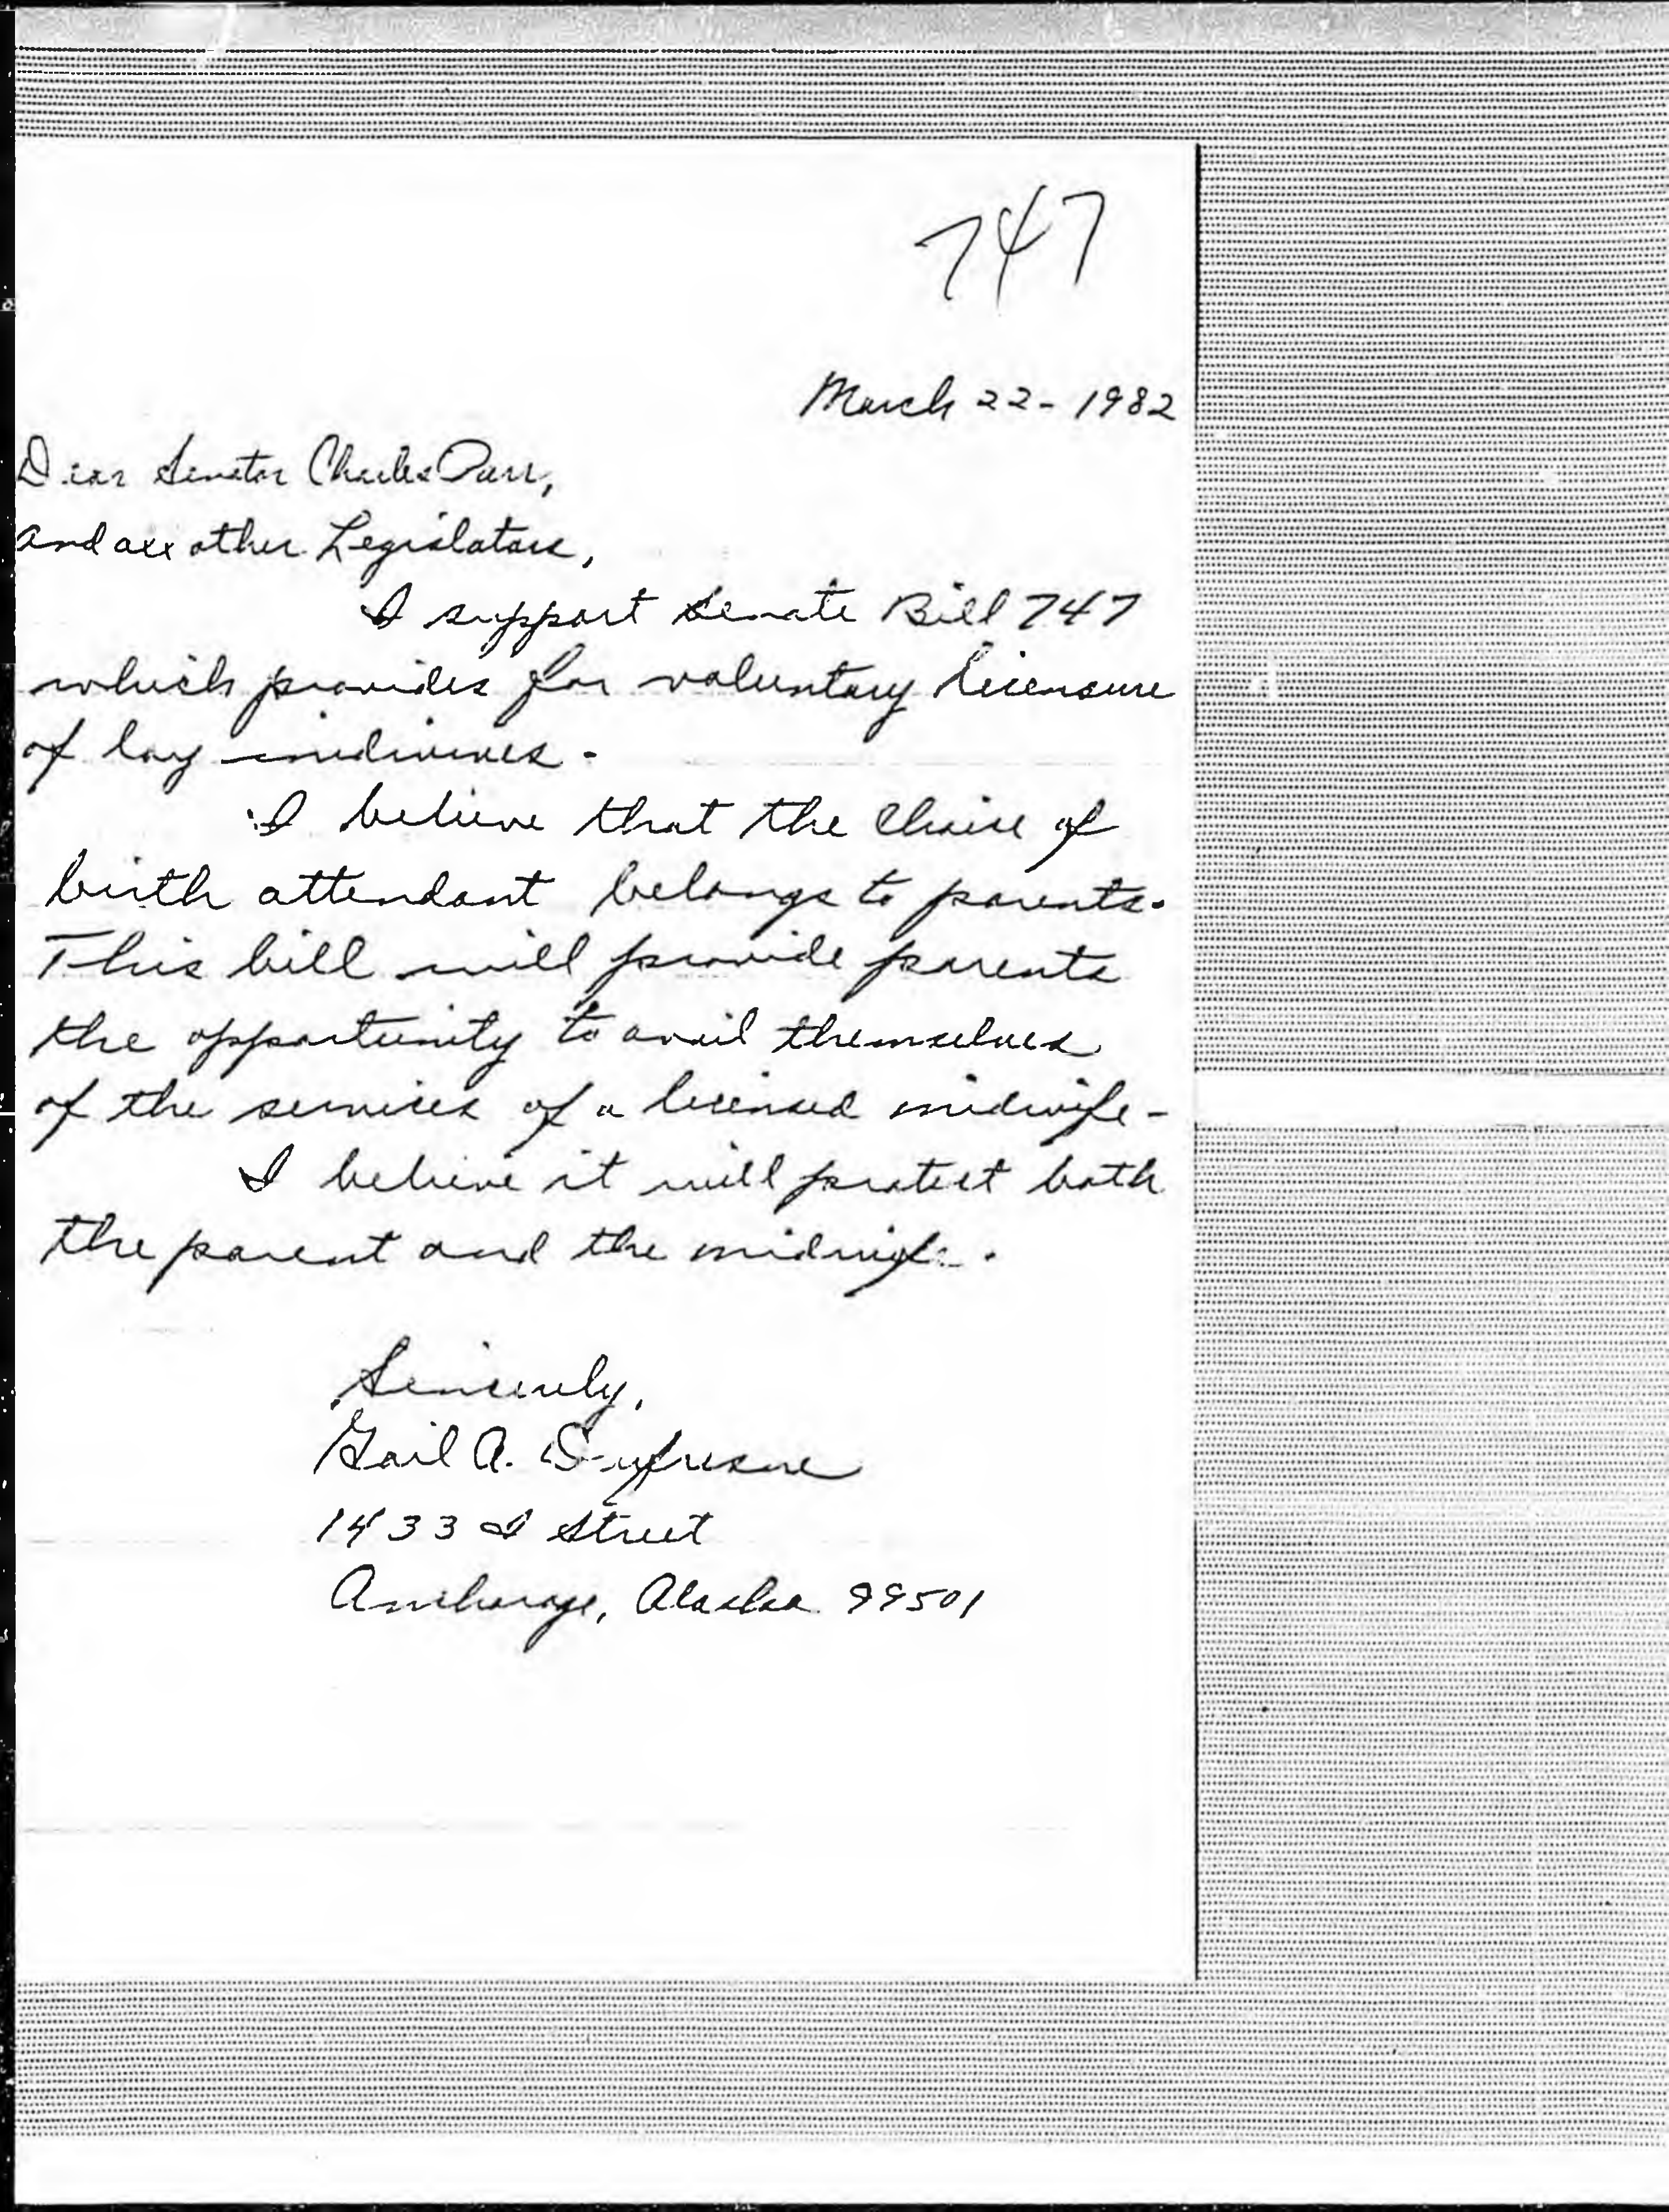 747
March 22- 1982
Dear Senator Charles Parr,
and all other Legislators,
I support Senate Bill 747
which provides for voluntary licensure
of lay midwives.
I believe that the choice of
birth attendant belongs to parents.
This bill will provide parents
the opportunity to avail themselves
of the services of a licensed midwife-
I believe it will protect both
the parent and the midwife.
Sincerely,
Gail A.
1433 I Street
Anchorage, Alaska 99501